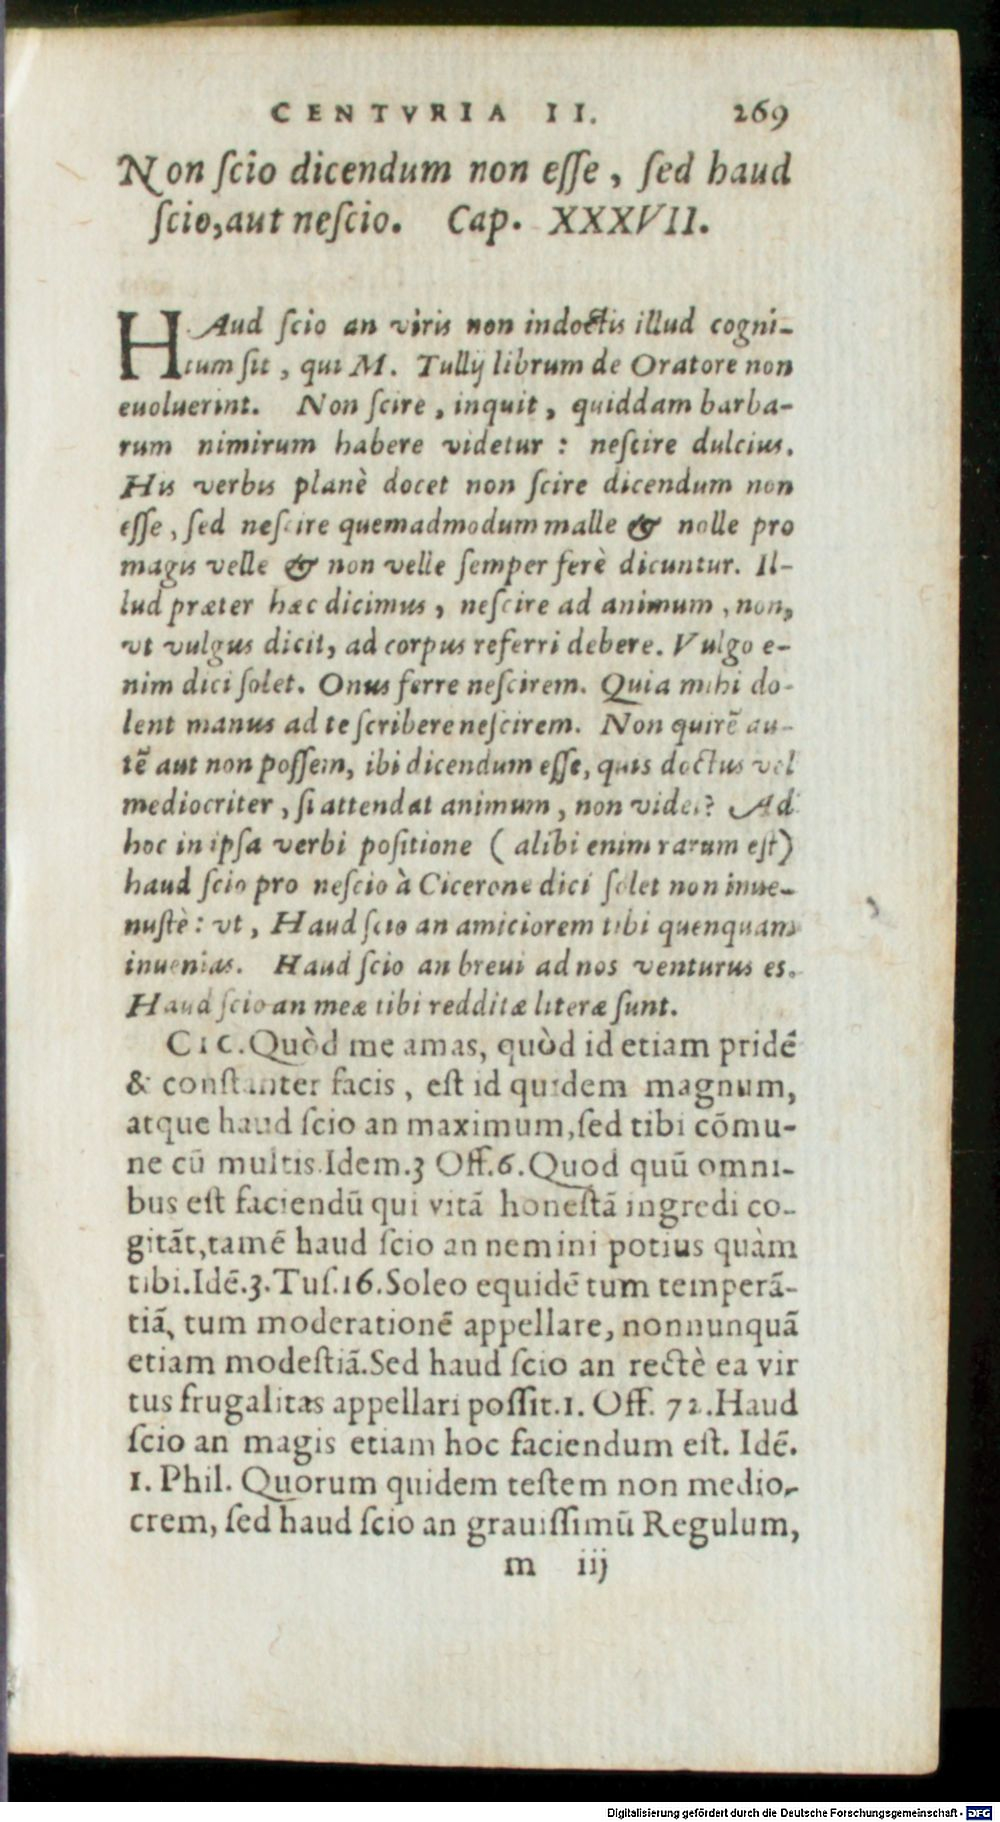 CENTVRIA II. 269
Non ſcio dicendum non eſſe, ſed haud
ſcio, aut neſcio. Cap. XXXVII.
HAud ſcio an viris non indoctis illud cogni-
tum ſit, qui M. Tullij librum de Oratore non
euoluerint. Non ſcire, inquit, quiddam barba-
rum nimirum habere videtur: neſcire dulcius.
His verbis planè docet non ſcire dicendum non
eſſe, ſed neſcire quemadmodum malle & nolle pro
magis velle & non velle ſemper ferè dicuntur. Il-
lud præter hæc dicimus, neſcire ad animum, non,
vt vulgus dicit, ad corpus referri debere. Vulgo e-
nim dici ſolet. Onus ferre neſcirem. Quia mihi do-
lent manus ad te ſcribere neſcirem. Non quirẽ au-
tẽ aut non poſſem, ibi dicendum eſſe, quis doctus vel
mediocriter, ſi attendat animum, non videt? Ad
hoc in ipſa verbi poſitione (alibi enim rarum eſt)
haud ſcio pro neſcio à Cicerone dici ſolet non inue-
nuſtè: vt, Haud ſcio an amiciorem tibi quenquam
inuenias. Haud ſcio an breui ad nos venturus es.
Haud ſcio an meæ tibi redditæ literæ ſunt.
CIC. Quòd me amas, quòd id etiam pridẽ
& conſtanter facis, eſt id quidem magnum,
atque haud ſcio an maximum, ſed tibi cõmu-
ne cũ multis. Idem. 3 Off. 6. Quod quũ omni-
bus eſt faciendũ qui vitã honeſtã ingredi co-
gitãt, tamẽ haud ſcio an nemini potius quàm
tibi. Idẽ. 3. Tuſ. 16. Soleo equidẽ tum temperã-
tiã, tum moderationẽ appellare, nonnunquã
etiam modeſtiã. Sed haud ſcio an rectè ea vir
tus frugalitas appellari poſſit. 1. Off. 72. Haud
ſcio an magis etiam hoc faciendum eſt. Idẽ.
1. Phil. Quorum quidem teſtem non medio-
crem, ſed haud ſcio an grauiſſimũ Regulum,
m iij
Digitalisierung gefördert durch die Deutsche Forschungsgemeinschaft - DFG